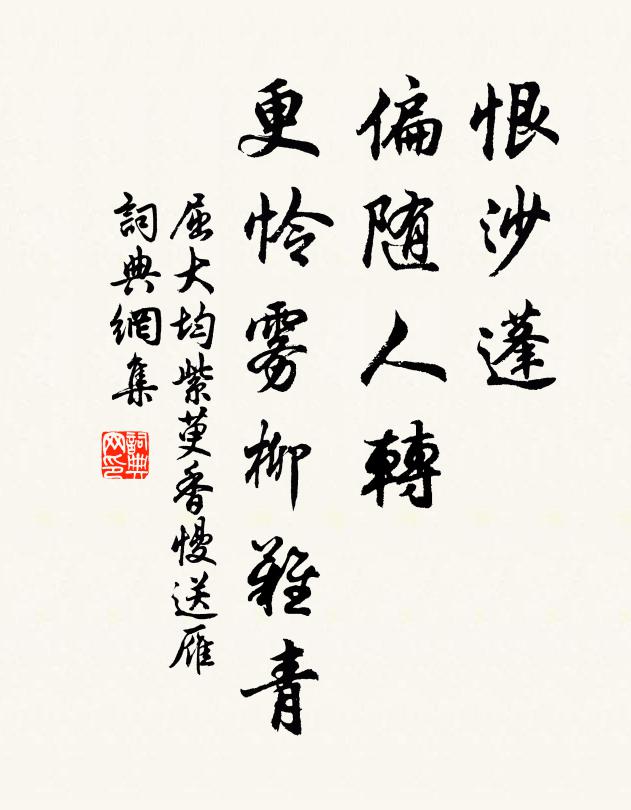 恨沙蓬
偏随人轉
更怜雾柳難青
屈大均紫萸香慢送雁
詞典網集
詞典网印